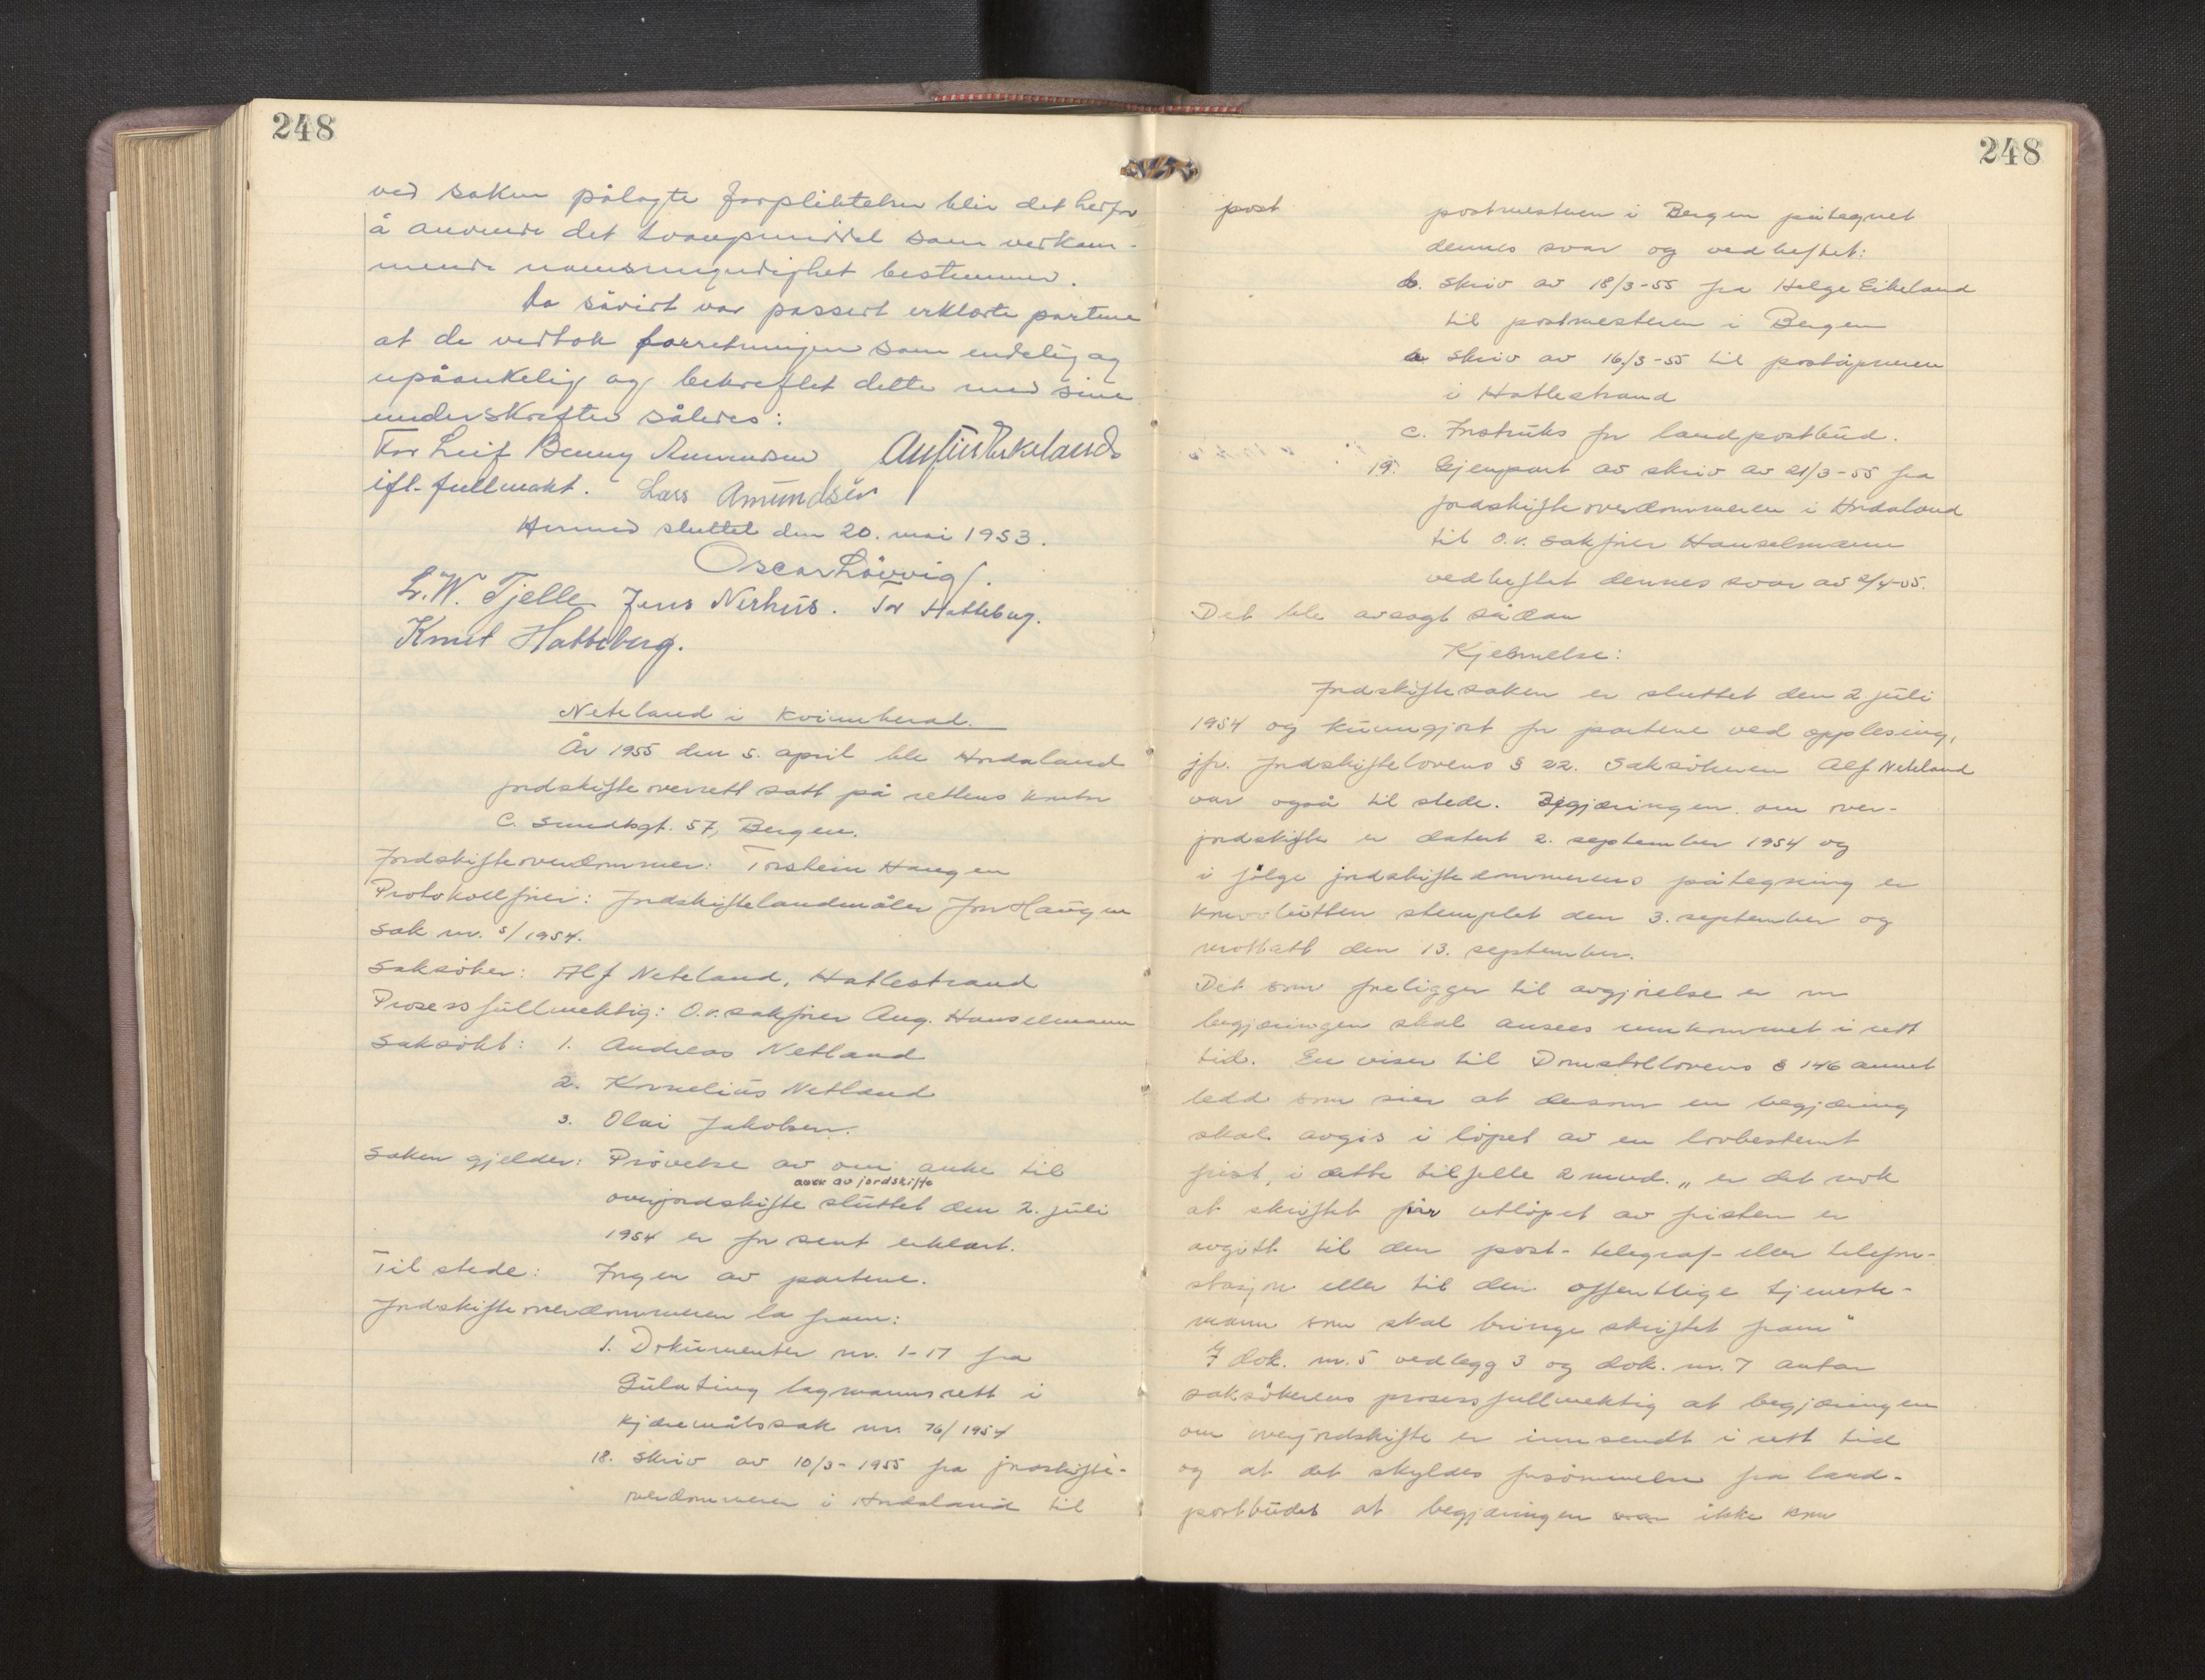 248
ved saken pålagte forpliktelser blir det herfor
å anvende det tvangsmiddel som vedkom-
mende namsmyndighet bestemmer.
Da såvidt var passert erklærte partene
at de vedtok forretningen som endelig og
upåankelig og bekreftet dette med sine
underskrifter således:
For Leif Benny Amundsen
ifl. fullmakt. Lars Amundsen
Hermed sluttet den 20. mai 1953.
Oscar Lövvig
L.W. Tjelle Jens Nerhus. Tor Hatteberg.
Knut Hatteberg.
Neteland i Kvinnherad.
År 1955 den 5. april ble Hordaland
jordskifteoverrett satt på rettens kontor
C. Sundtsgt. 57, Bergen.
Jordskifteoverdommer: Torstein Haugen
Protokollfører: Jordskiftelandmåler Jon Haugen
Sak nr. 5/1954.
Saksöker: Alf Neteland, Hatlestrand
Prosessfullmektig: O.r.sakfører Aug. Hanselmann
Saksökt: 1. Andreas Netland
2. Kornelius Netland
3. Olai Jakobsen.
Saken gjelder: Prövelse av om anke til
over av jordskifte
overjordskifte sluttet den 2. juli
1954 er for sent erklært.
Til stede: Ingen av partene.
Jordskifteoverdommeren la fram:
1. Dokumenter nr. 1-17 fra
Gulating lagmannsrett i
kjæremålssak nr. 76/1954
18. Skriv av 10/3-1955 fra jordskifte-
overdommeren i Hordaland til
248
post
postmesteren i Bergen påtegnet
dennes svar og vedheftet:
b. Skriv av 18/3-55 fra Helge Eikeland
til postmesteren i Bergen
a. Skriv av 16/3-55 til poståpneren
i Hatlestrand
c. Instruks for landpostbud.
19. Gjenpart av skriv av 21/3-55 fra
jordskifteoverdommeren i Hordaland
til o.r. sakfører Hanselmann
vedheftet dennes svar av 2/4-55.
Det ble avsagt sådan
Kjennelse:
Jordskiftesaken er sluttet den 2 juli
1954 og kunngjort for partene ved opplesing,
jfr. Jordskiftelovens § 22. Saksökeren Alf Neteland
var også til stede. Begjæringen om over-
jordskifte er datert 2. september 1954 og
i fölge jordskiftedommerens påtegning er
konvolutten stemplet den 3. september og
mottatt den 13. september.
Det som foreligger til avgjørelse er om
begjæringen skal ansees innkommet i rett
tid. En viser til Domstollovens § 146 annet
ledd som sier at dersom en begjæring
skal avgis i löpet av en lovbestemt
frist, i dette tilfelle 2 mnd. „er det nok
at skriftet för utlöpet av fristen er
avgitt til den post- telegraf- eller telefon-
stasjon eller til den offentlige tjeneste-
mann som skal bringe skriftet fram"
I dok. nr. 5 vedlegg 3 og dok. nr. 7 antar
saksökerens prosessfullmektig at begjæringen
om overjordskifte er innsendt i rett tid
og at det skyldes forsömmelse fra land-
postbudet at begjæringen ikke kom